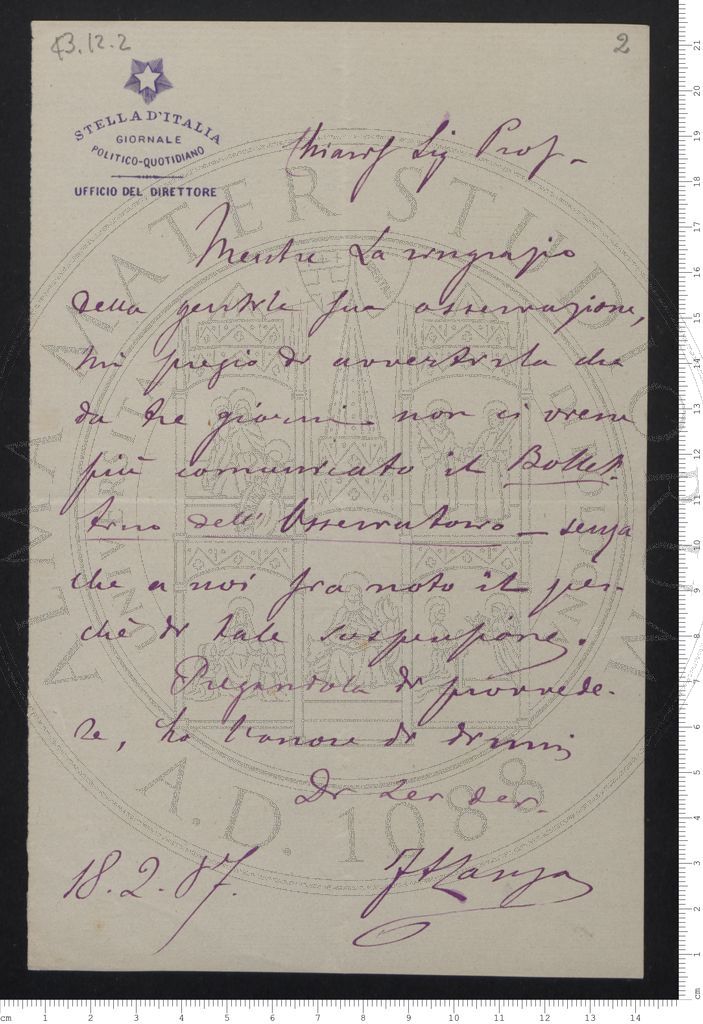 43.12.2
2
STELLA D'ITALIA
GIORNALE
POLITICO-QUOTIDIANO
UFFICIO DEL DIRETTORE
Chiarmo Sig Prof.
Mentre La ringrazio
della gentile sua osservazione,
mi pregio di avvertirla che
da tre giorni non ci viene
più comunicato il Bollet-
tino dell'Osservatorio — senza
che a noi sia noto il per-
chè di tale suspensione.
Pregandola di provvede-
re, ho l'onore di dirmi
Di Lei dev.
18.2.87.
ALMA MATER STUDIORUM
A.D. 1088